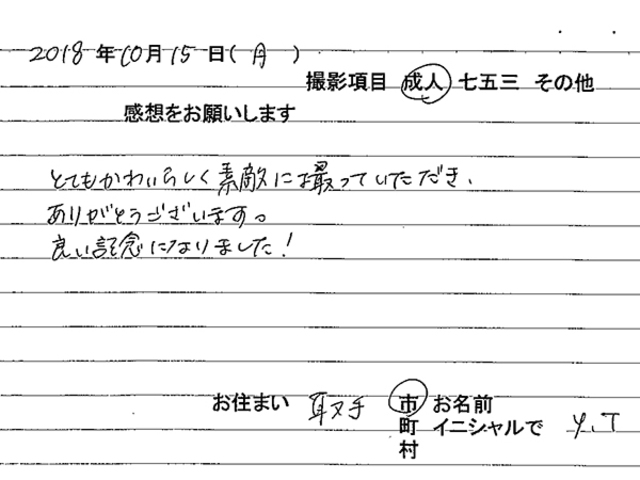 2018年10月15日(月)
撮影項目 成人 七五三 その他
感想をお願いします
とてもかわいらしく素敵に撮っていただき、
ありがとうございます。
良い記念になりました!
お住まい 取手 市 お名前
町 イニシャルで Y.T
村